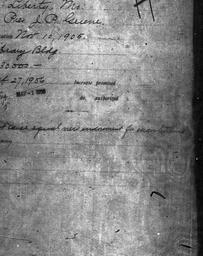 Liberty, Mo.
Pres. J. P. Greene,
Nov. 10, 1905.
Library Bldg
30000.—
27, 1906
Increase promised
MAY -1 1908
do. authorized
equal new endowment for